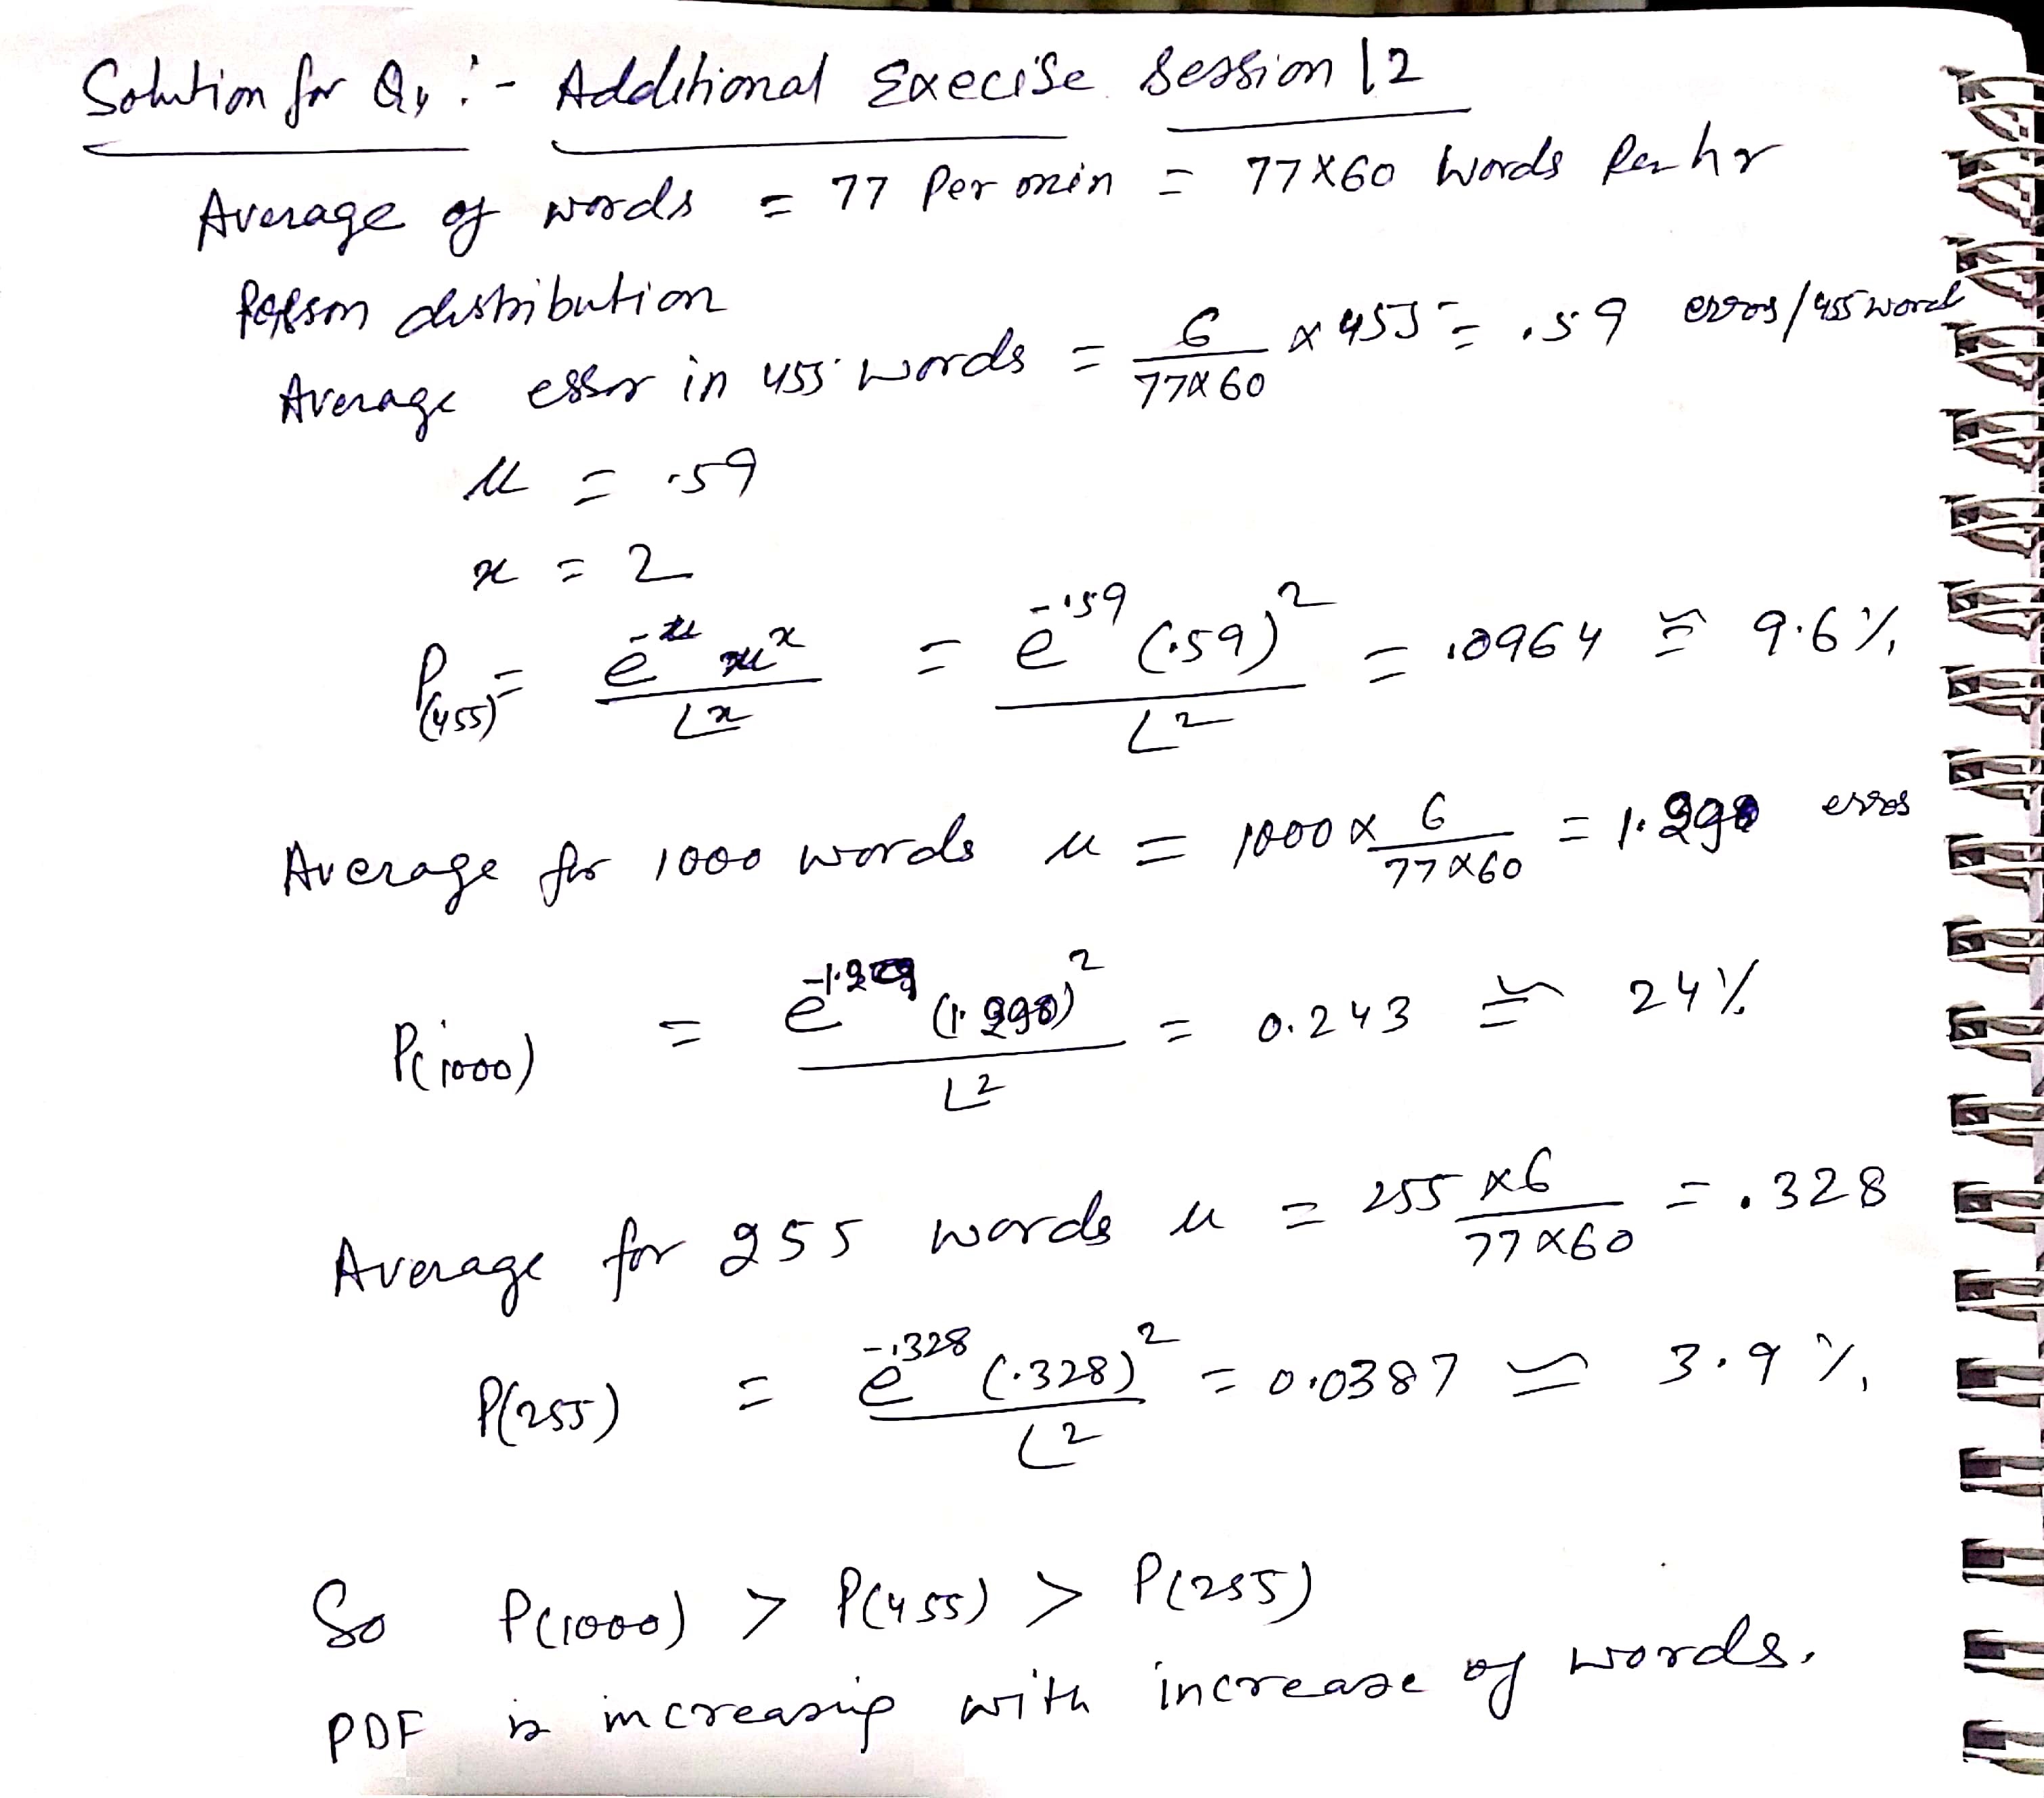 Solution for Q4 :- Additional Execise Session 12
Average of words = 77 Per min = 77x60 words Per hr
Poisson distribution
Average error in 455 words = 6/(77x60) x 455 = .59 erros/455 word
μ = .59
x = 2
P(455) = e^-μ μ^x / ∟x = e^-.59 (.59)^2 / ∟2 = .0964 ≅ 9.6%
Average for 1000 words μ = 1000 x 6/(77x60) = erros
P(1000) = / ∟2 = 0.243 ≅ 24%
Average for 255 words μ = 255 x6/(77x60) = .328
P(255) = e^-.328 (.328)^2 / ∟2 = 0.0387 ≃ 3.9%
So P(1000) > P(455) > P(255)
PDF is increasing with increase of words.